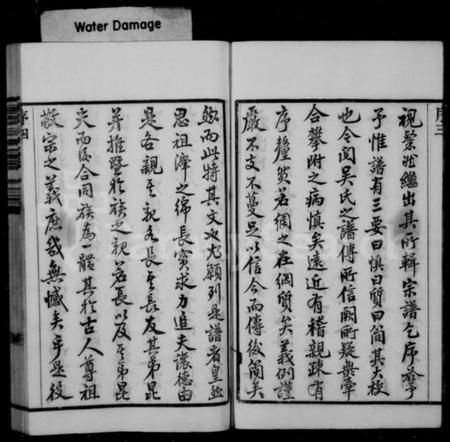 Water Damage
序三
視棨狀繼出其所輯宗譜乞序於
予惟譜有三要曰慎曰質曰簡其大較
也今閱吳氏之譜傳所信闕所疑與牽
合攀附之病慎矣遠近有稽親疎有
序釐然若綱之在綱質矣義例謹
嚴不支不蔓足以信今而傳後簡矣
然而此特其文也尤願列是譜者皇然
思祖澤之綿長實求力追夫讓德由
是各親其親各長其長及其弟昆
并推暨於族之親若長以及其弟昆
夫而後合同族為一體其於古人尊祖
敬宗之義庶幾無憾矣乎是役
序四